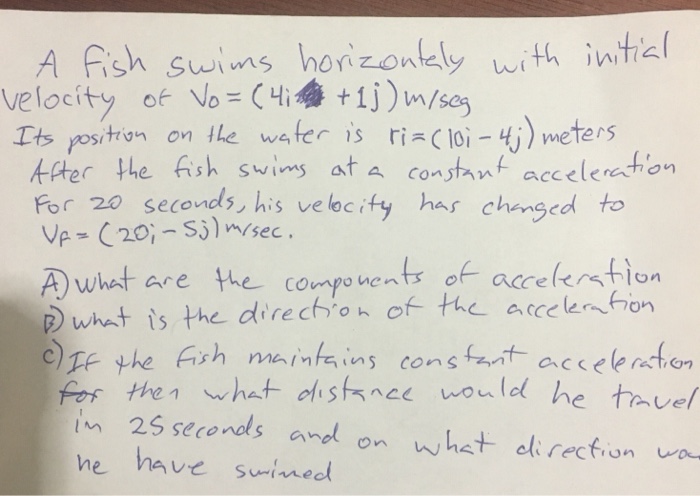 A fish swims horizontaly with initial
velocity of Vo = (4i +1j) m/seg
Its position on the water is ri = (10i - 4j) meters
After the fish swims at a constant acceleration
For 20 seconds, his velocity has changed to
VF = (20i - 5j) m/sec.
A) what are the components of acceleration
B) what is the direction of the acceleration
c) If the fish maintains constant acceleration
for then what distance would he travel
in 25 seconds and on what direction
he have swimed